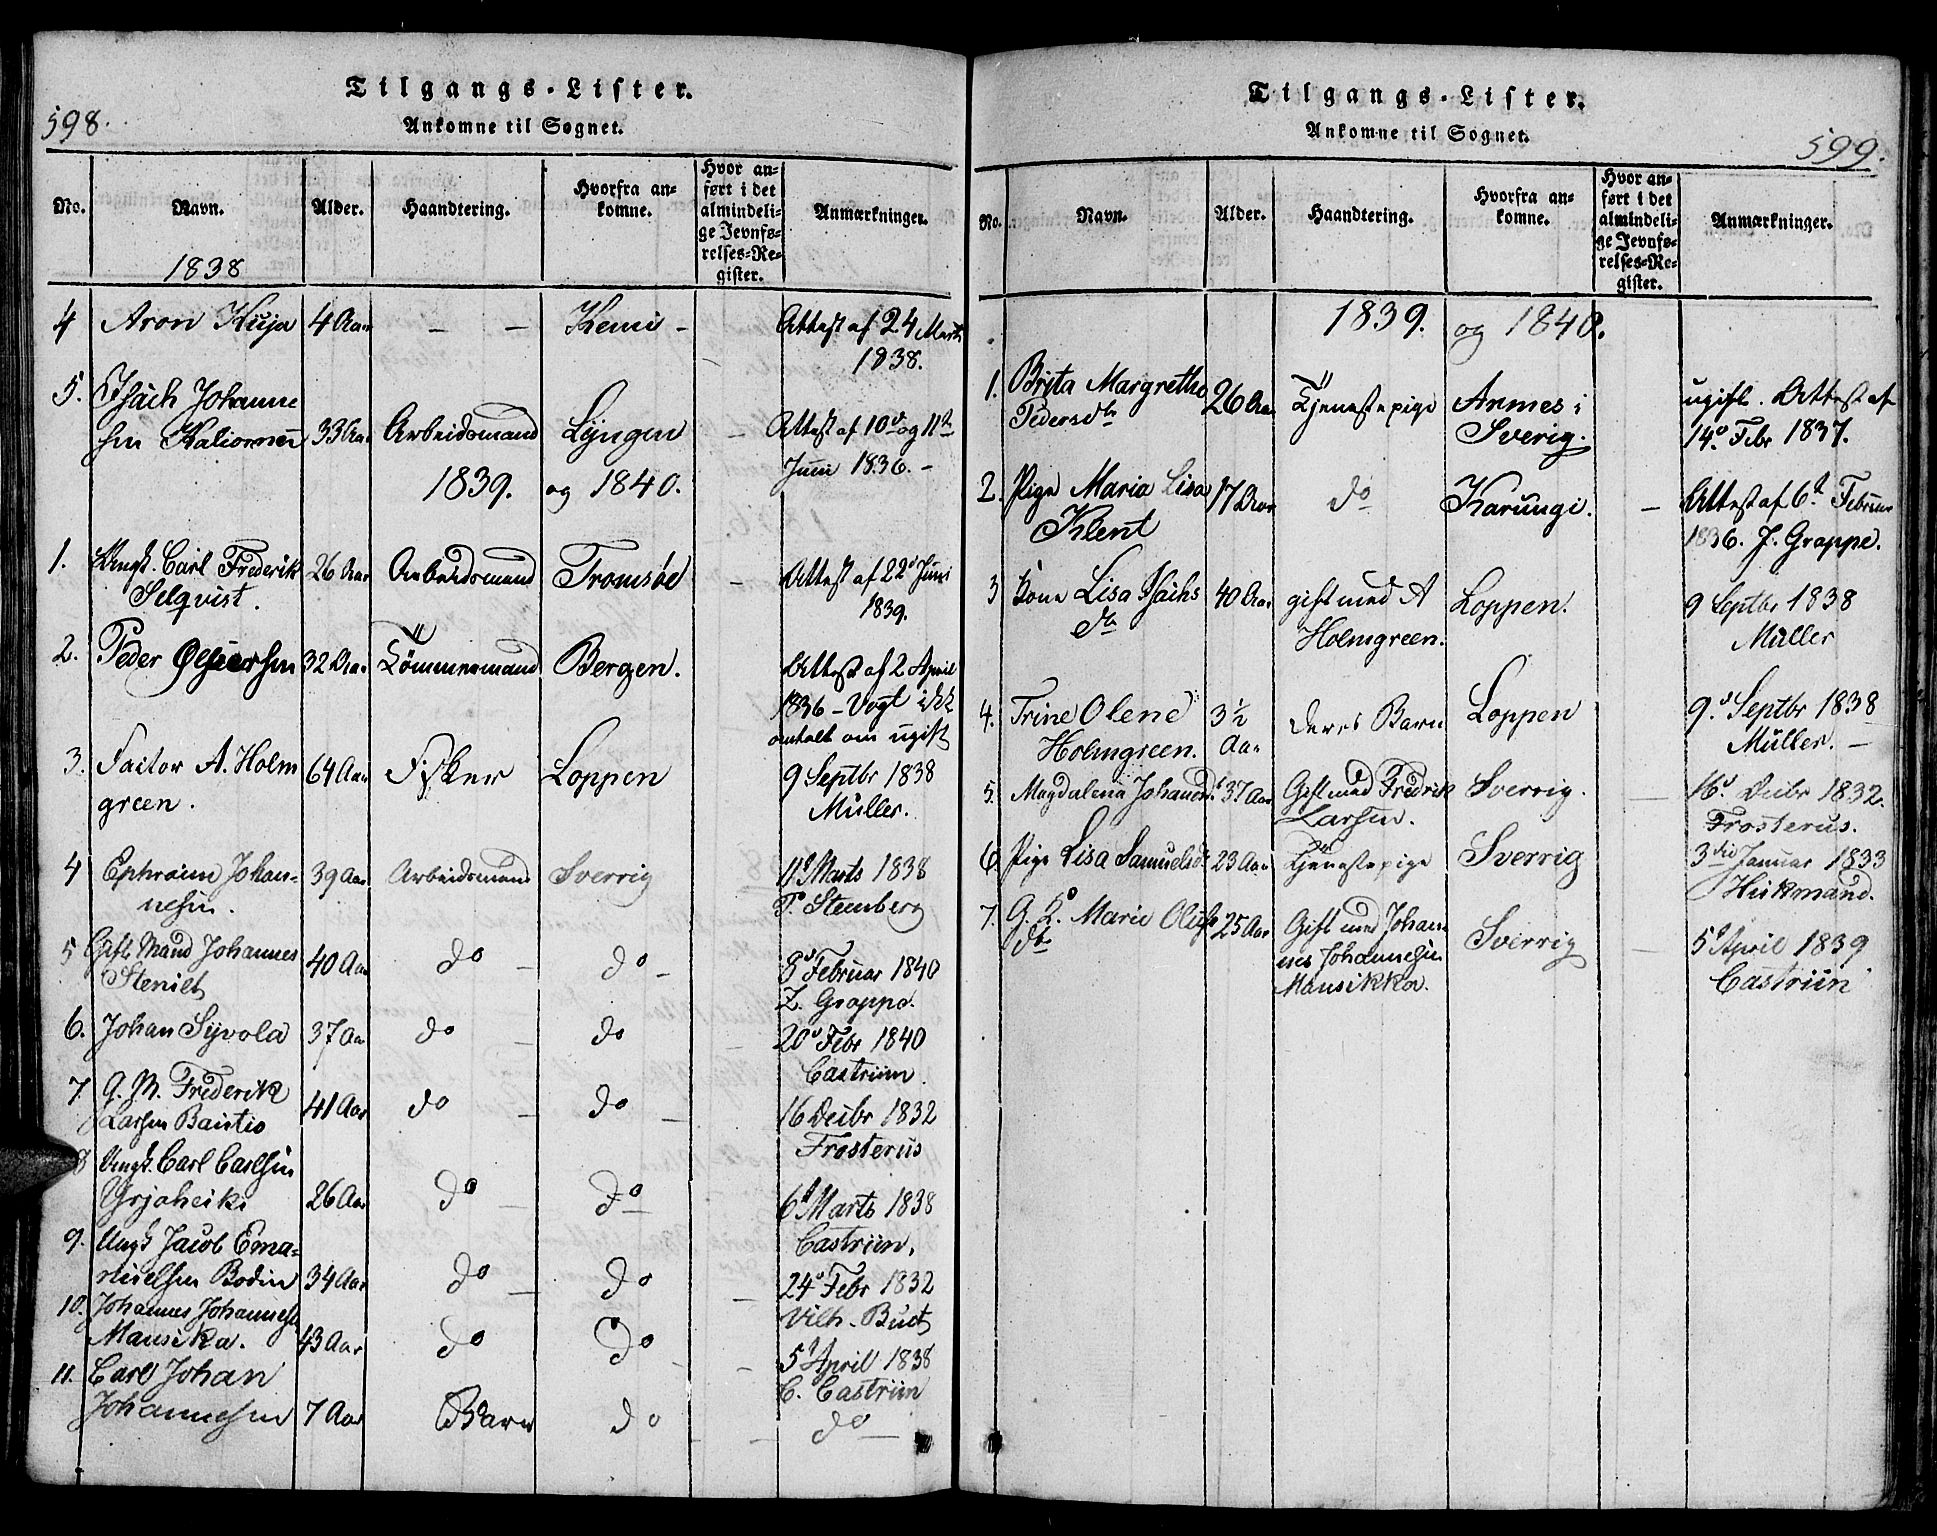 598.
Tilgangs-Lister.
Ankomne til Sognet.
No. Navn. Alder. Haandtering. Hvorfra ankomne. Hvor anført i det almindelige Jevnførelses-Register. Anmærkninger.
1838
4 Aron Kuja 4 Aar — — Kemi - Attest af 24 Marts
1838.
5. Isach Johanne
sen 33 Aar Arbeidsmand Lyngen — Attest af 10d og 11te
Juni 1836. -
1839. og 1840.
1. Ungk. Carl Frederik 26 Aar Arbeidsmand Tromsöe — Attest af 22d Juni
Selqvist. 1839.
2. Peder 32 Aar Tömmermand Bergen. Attest af 2 April
1836 - Vogt ikke
omtalt om ugift
3. Factor A. Holm 64 Aar Fisker Loppen 9 Septbr 1838
green. Müller.
4 Ephraim Johan- 39 Aar Arbeidsmand Sverrig 11d Marts 1838
nesen. P. Stenberg
5 Gift Mand Johannes 40 Aar do — do — 8d Februar 1840
Grappe.
6. Johan Syvola 37 Aar do do 20d Febr 1840
Castrén.
7. G. M. Frederik 41 Aar do — do — 16 Decbr 1832
Larsen Baistio Frosterus
8 Ungk. Carl Carlsen
Yrjaheiki 26 Aar do — do — 6d Marts 1838
Castrén.
9. Ungk Jacob Ema-
nuelsen Bodin 34 Aar do — do — 24d Febr 1832
Vilh. Bucht
10. Johannes Johannesen
Mansika. 43 Aar do do — — 5d April 1838
C. Castrén
11. Carl Johan
Johannesen 7 Aar Barn do — do —
Tilgangs-Lister.
Ankomne til Sognet.
599.
No. Navn. Alder. Haandtering. Hvorfra ankomne. Hvor anført i det almindelige Jevnførelses-Register. Anmærkninger.
1839. og 1840.
1. Brita Margretha 26 Aar Tjenestepige Armes i ugift. Attest af
Pedersdtr Sverig. 14d Febr 1837.
2. Pige Maria Lisa 17 Aar do Karungi. — Attest af 6te Februar
Klent 1836. J. Grappe.
3 Kone Lisa Isachs 40 Aar gift med A Loppen. 9 Septbr 1838
dtr Holmgreen. Müller
4. Trine Olene 3 ½ deres Barn Loppen 9d Septbr 1838
Holmgreen. Aar Müller. —
5. Magdalena Johansd. 37 Aar Gift med Fredrik Sverrig. — 16d Decbr 1832.
Larsen. Frosterus.
6. Pige Lisa Samuelsdr 23 Aar Tjenestepige Sverrig 3die Januar 1833
Heikmand.
7. G. K. Marie Olufs 25 Aar Gift med Johan- Sverrig — 5d April 1839
dtr nes Johannesen Castrén
Mansikka.